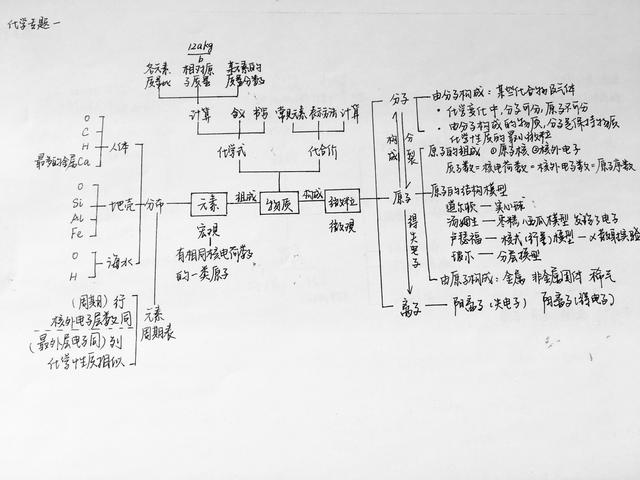 化学专题一
12a kg
b
各元素 相对原 某元素的
质量比 子质量 质量分数
计算 含义 书写 常见元素 表示方法 计算
化学式 化合价
O
C
H
最多的金属Ca
人体
O
Si
Al
Fe
地壳
O
H
海水
分布
元素 组成 物质 构成 微粒
宏观 微观
有相同核电荷数
的一类原子
(周期) 行
核外电子层数同
(最外层电子同) 列
化学性质相似
元素
周期表
分子
构成 分裂
原子
得失电子
离子
由分子构成:某些化合物及气体
·化学变化中,分子可分,原子不可分
·由分子构成的物质,分子是保持物质
化学性质的最小微粒
原子的组成 ①原子核 ②核外电子
质子数=核电荷数=核外电子数=原子序数
原子的结构模型
道尔顿—实心球
汤姆生—枣糕/西瓜模型 发现了电子
卢瑟福—核式(行星)模型—α散射实验
玻尔—分层模型
由原子构成:金属 非金属固体 稀气
阳离子(失电子) 阴离子(得电子)